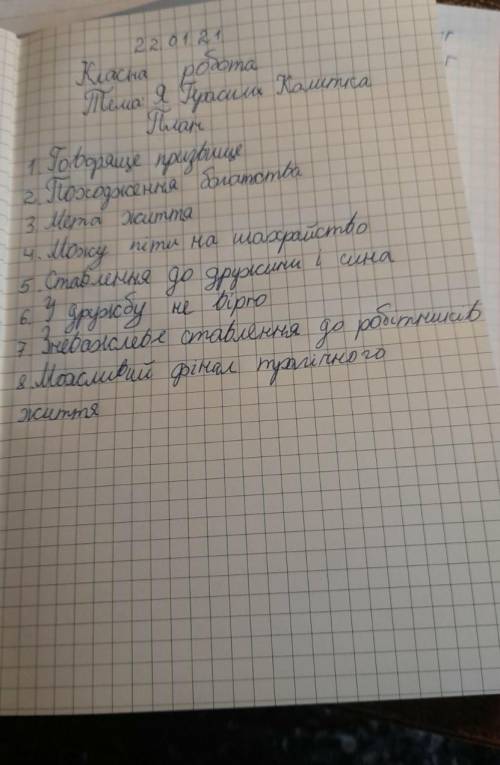 22 01 21
Класна робота
Тема: Я Герасим Калитка
План
1. Говоряще прізвище
2. Походження богатства
3 Мета життя
4. Можу піти на шахрайство
5. Ставлення до дружини і сина
6. У дружбу не вірю
7 Зневажлеве ставлення до робітників
8. Можливий фінал трагічного
життя